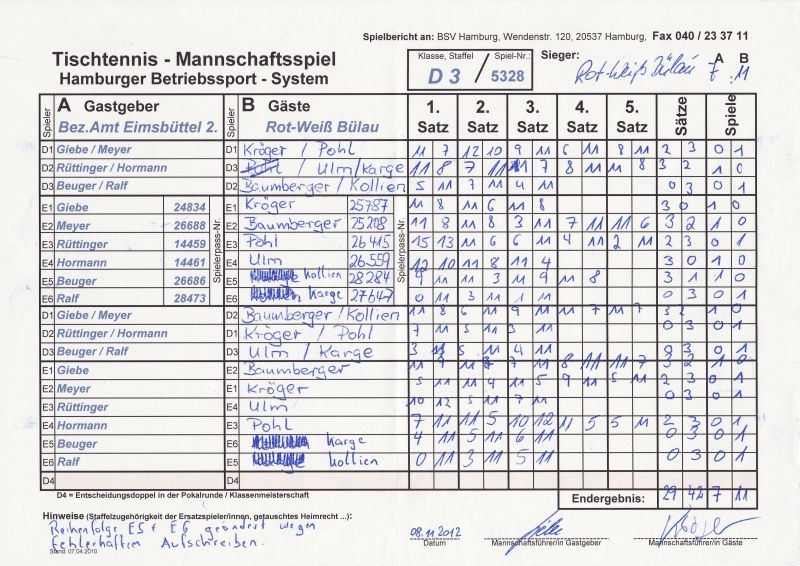 Spielbericht an: BSV Hamburg, Wendenstr. 120, 20537 Hamburg, Fax 040 / 23 37 11
Tischtennis - Mannschaftsspiel
Hamburger Betriebssport - System
Klasse, Staffel Spiel-Nr.:
D 3 / 5328
Sieger: A B
Rot-Weiß Bülau 7 : 11
Spieler A Gastgeber Spieler B Gäste 1. 2. 3. 4. 5. Sätze Spiele
Bez.Amt Eimsbüttel 2. Rot-Weiß Bülau Satz Satz Satz Satz Satz
D1 Giebe / Meyer D1 Kröger / Pohl 11 7 12 10 9 11 6 11 8 11 2 3 0 1
D2 Rüttinger / Hormann D3 Ulm/Karge 11 8 7 11 11 7 8 11 11 8 3 2 1 0
D3 Beuger / Ralf D2 Baumberger / Kollien 5 11 7 11 4 11 0 3 0 1
E1 Giebe 24834 E1 Kröger 25787 11 8 11 6 11 8 3 0 1 0
E2 Meyer 26688 E2 Baumberger 25208 11 8 11 8 3 11 7 11 11 6 3 2 1 0
E3 Rüttinger 14459 E3 Pohl 26415 15 13 11 6 6 11 4 11 2 11 2 3 0 1
E4 Hormann 14461 E4 Ulm 26559 12 10 11 8 11 4 3 0 1 0
E5 Beuger 26686 E5 kollien 28284 9 11 11 3 11 9 11 8 3 1 1 0
E6 Ralf 28473 E6 karge 27647 0 11 3 11 1 11 0 3 0 1
Spielerpass-Nr. Spielerpass-Nr.
D1 Giebe / Meyer D2 Baumberger/Kollien 11 8 6 11 9 11 11 7 11 7 3 2 1 0
D2 Rüttinger / Hormann D1 Kröger / Pohl 7 11 5 11 3 11 0 3 0 1
D3 Beuger / Ralf D3 Ulm / Karge 3 11 5 11 4 11 0 3 0 1
E1 Giebe E2 Baumberger 11 9 7 11 8 11 11 7 3 2 1 0
E2 Meyer E1 Kröger 5 11 11 4 11 5 9 11 5 11 2 3 0 1
E3 Rüttinger E4 Ulm 10 12 5 11 7 11 0 3 0 1
E4 Hormann E3 Pohl 7 11 11 5 10 12 11 5 5 11 2 3 0 1
E5 Beuger E6 karge 4 11 5 11 6 11 0 3 0 1
E6 Ralf E5 kollien 0 11 3 11 5 11 0 3 0 1
D4 D4
D4 = Entscheidungsdoppel in der Pokalrunde / Klassenmeisterschaft
Endergebnis: 29 42 7 11
Hinweise (Staffelzugehörigkeit der Ersatzspieler/innen, getauschtes Heimrecht ...):
Reihenfolge E5 + E6 geändert wegen
fehlerhaftem Aufschreiben.
Stand: 07.04.2010
08.11.2012
Datum Mannschaftsführer/in Gastgeber Mannschaftsführer/in Gäste